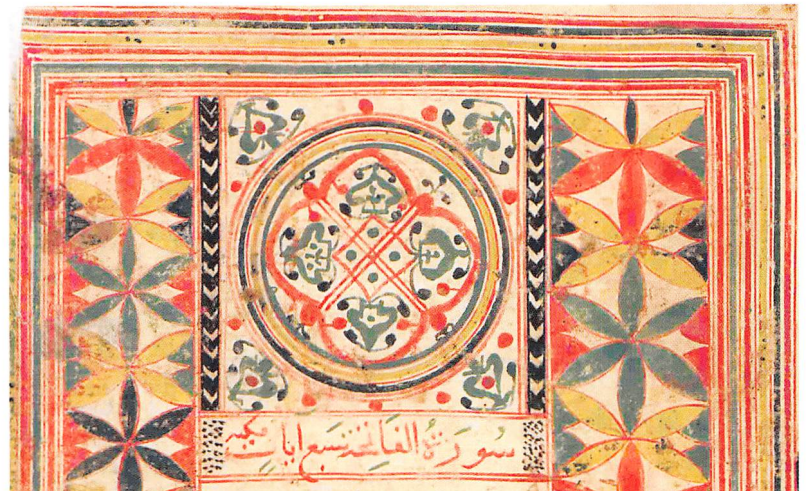 سُورَةُ الفَاتحة سبع ايات مكية